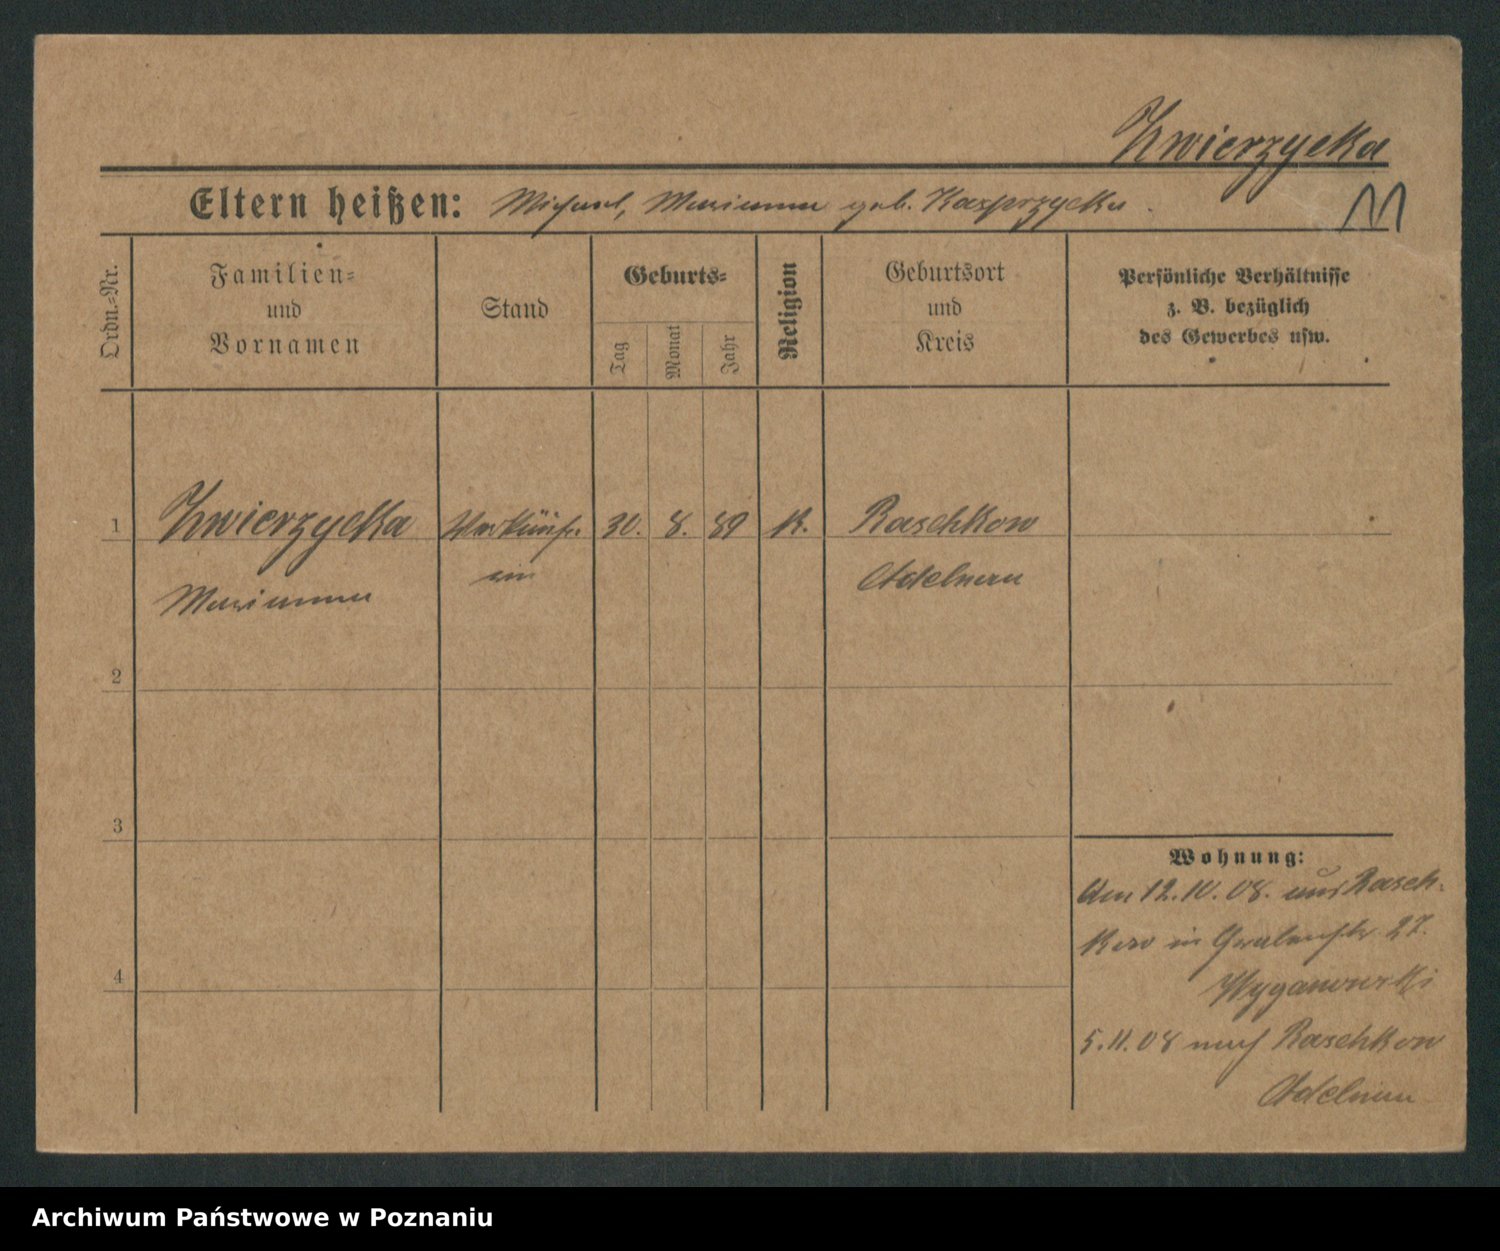 Zwierzycka
Eltern heißen: Michael, Marianna geb. Kasprzycka.
Ordn.=Nr.
Familien=
und
Vornamen
Stand
Geburts=
Tag
Monat
Jahr
Religion
Geburtsort
und
Kreis
Persönliche Verhältnisse
z. B. bezüglich
des Gewerbes usw.
1 Zwierzycka Verkäufe= 30. 8. 89 K. Raschkow
rin Adelnau
Marianna
2
3
4
Wohnung:
Am 12.10.08. aus Rasch=
kow in 27.
Wyganowski
5.11.08 nach Raschkow
Adelnau
Archiwum Państwowe w Poznaniu